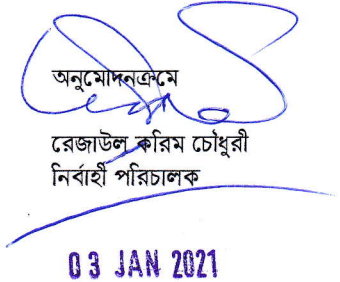 অনুমোদনক্রমে
রেজাউল করিম চৌধুরী
নির্বাহী পরিচালক
03 JAN 2021